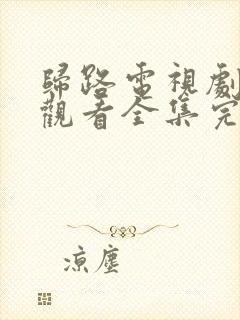 歸路電視劇
觀看全集完
涼塵